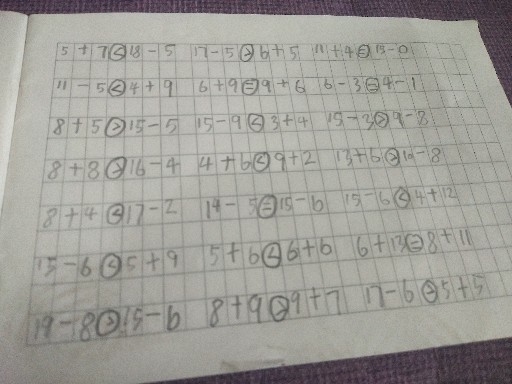 5 + 7 < 18 - 5 17 - 5 > 6 + 5 11 + 4 = 15 - 0
11 - 5 < 4 + 9 6 + 9 = 9 + 6 6 - 3 = 4 - 1
8 + 5 > 15 - 5 15 - 9 < 3 + 4 15 - 3 > 9 - 8
8 + 8 > 16 - 4 4 + 6 < 9 + 2 13 + 6 > 10 - 8
8 + 4 < 17 - 2 14 - 5 = 15 - 6 15 - 6 < 4 + 12
15 - 6 < 5 + 9 5 + 6 < 6 + 6 6 + 13 = 8 + 11
19 - 8 > 15 - 6 8 + 9 > 9 + 7 17 - 6 > 5 + 5